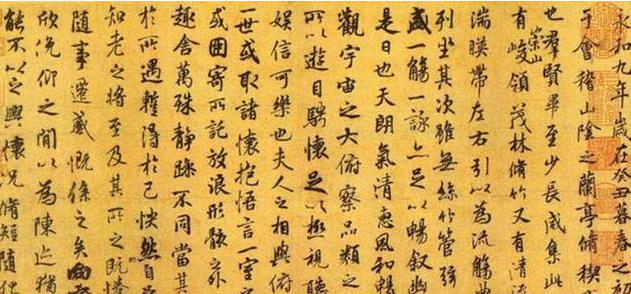 永和九年歲在癸丑暮春之初
于會稽山陰之蘭亭脩禊
也羣賢畢至少長咸集此
崇山
有峻領茂林脩竹又有清流
湍暎帶左右引以為流觴曲
列坐其次雖無絲竹管弦
盛一觴一詠亦足以暢敘幽
是日也天朗氣清惠風和暢
觀宇宙之大俯察品類之
所以遊目騁懷足以極視聽
娛信可樂也夫人之相與俯
一世或取諸懷抱悟言一室之
或因寄所託放浪形骸之外
趣舍萬殊靜躁不同當其
於所遇暫得於己快然自
知老之將至及其所之既惓
隨事遷感慨係之矣向
欣俛仰之間以為陳迹猶
能不以之興懷況脩短隨化